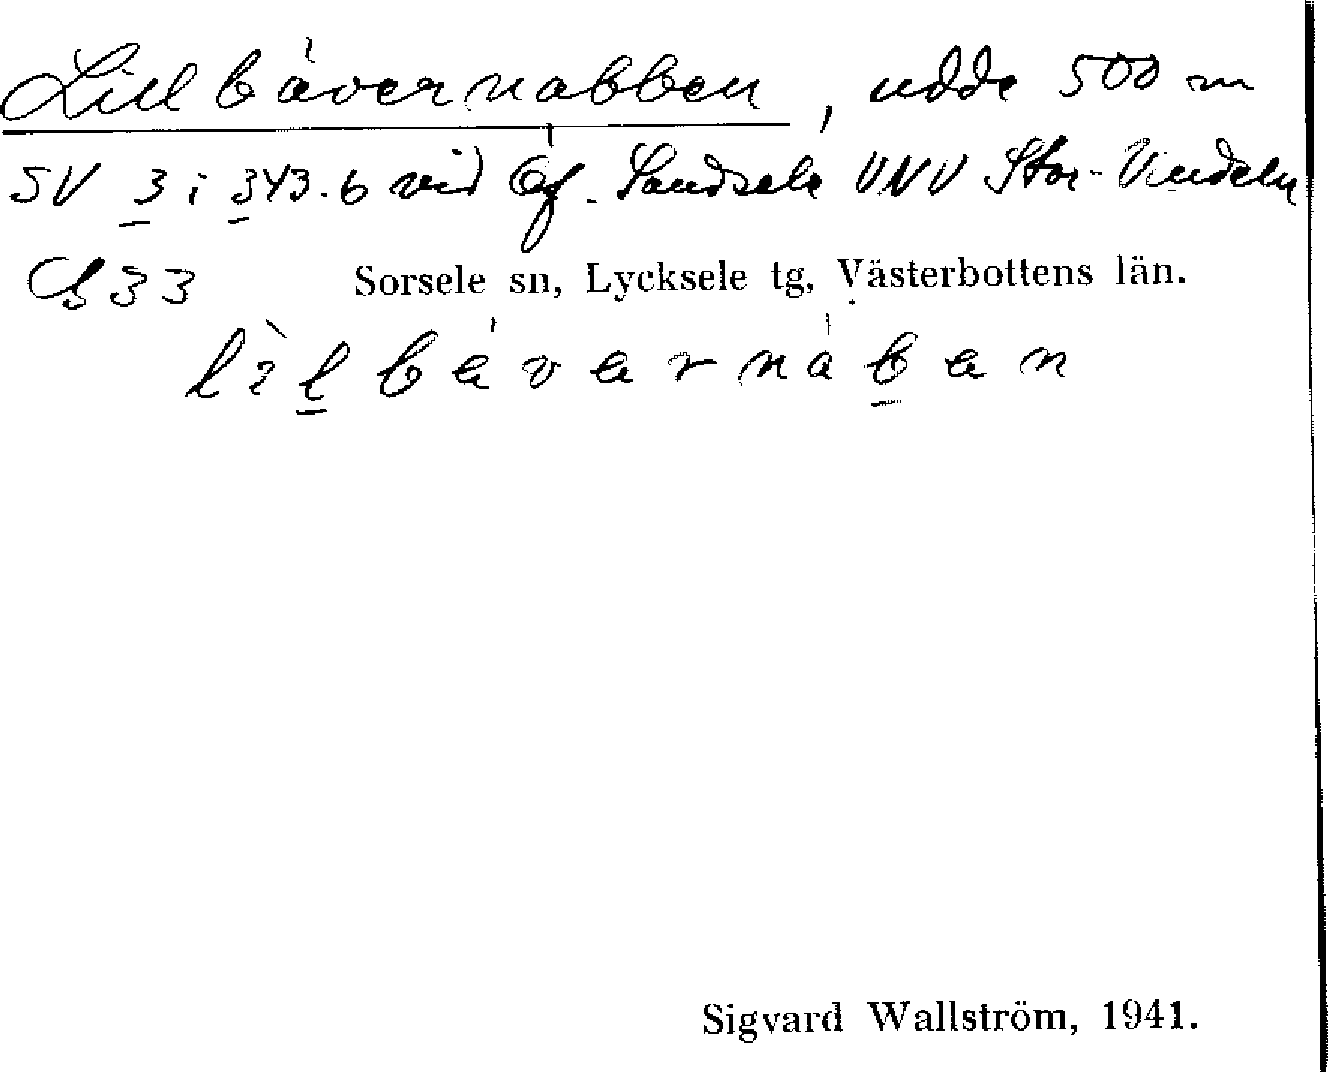 Lillbävernabben, udde 500 m
SV 3 i 343.6 vid Sandsele VNV Stor-Vindeln
33 Sorsele sn, Lycksele tg, Västerbottens län.
lìlbévernàben
Sigvard Wallström, 1941.